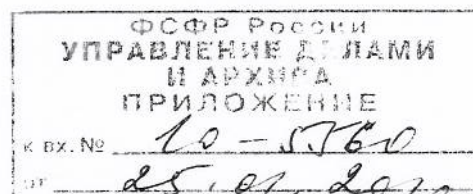 ФСФР России
УПРАВЛЕНИЕ ДЕЛАМИ
И АРХИВА
ПРИЛОЖЕНИЕ
к вх. №
от 25.01.2010